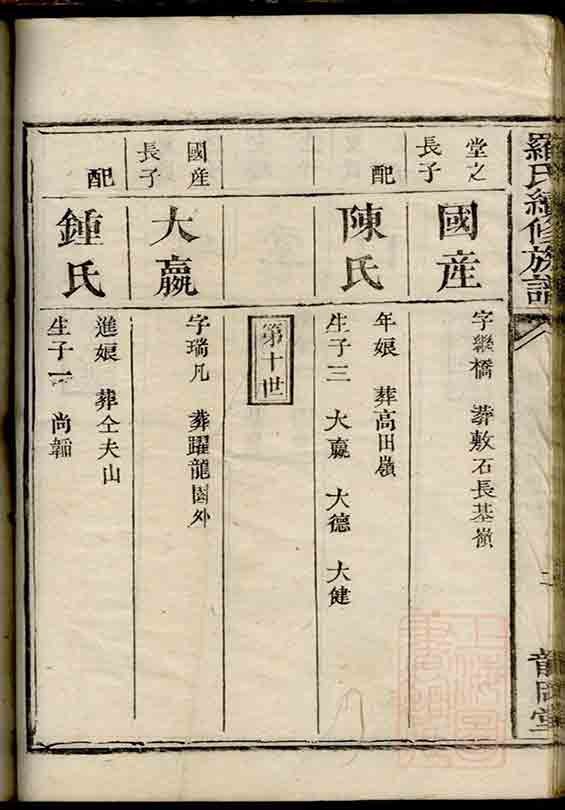 羅氏續修族譜
堂之
長子
國産
字
橋 葬敷石長基嶺
配
陳氏
年娘 葬高田嶺
生子三 大嬴 大德 大健
第十世
國産
長子
大嬴
字瑞凡 葬躍龍園外
配
鍾氏
進娘 葬仝夫山
生子一 尚